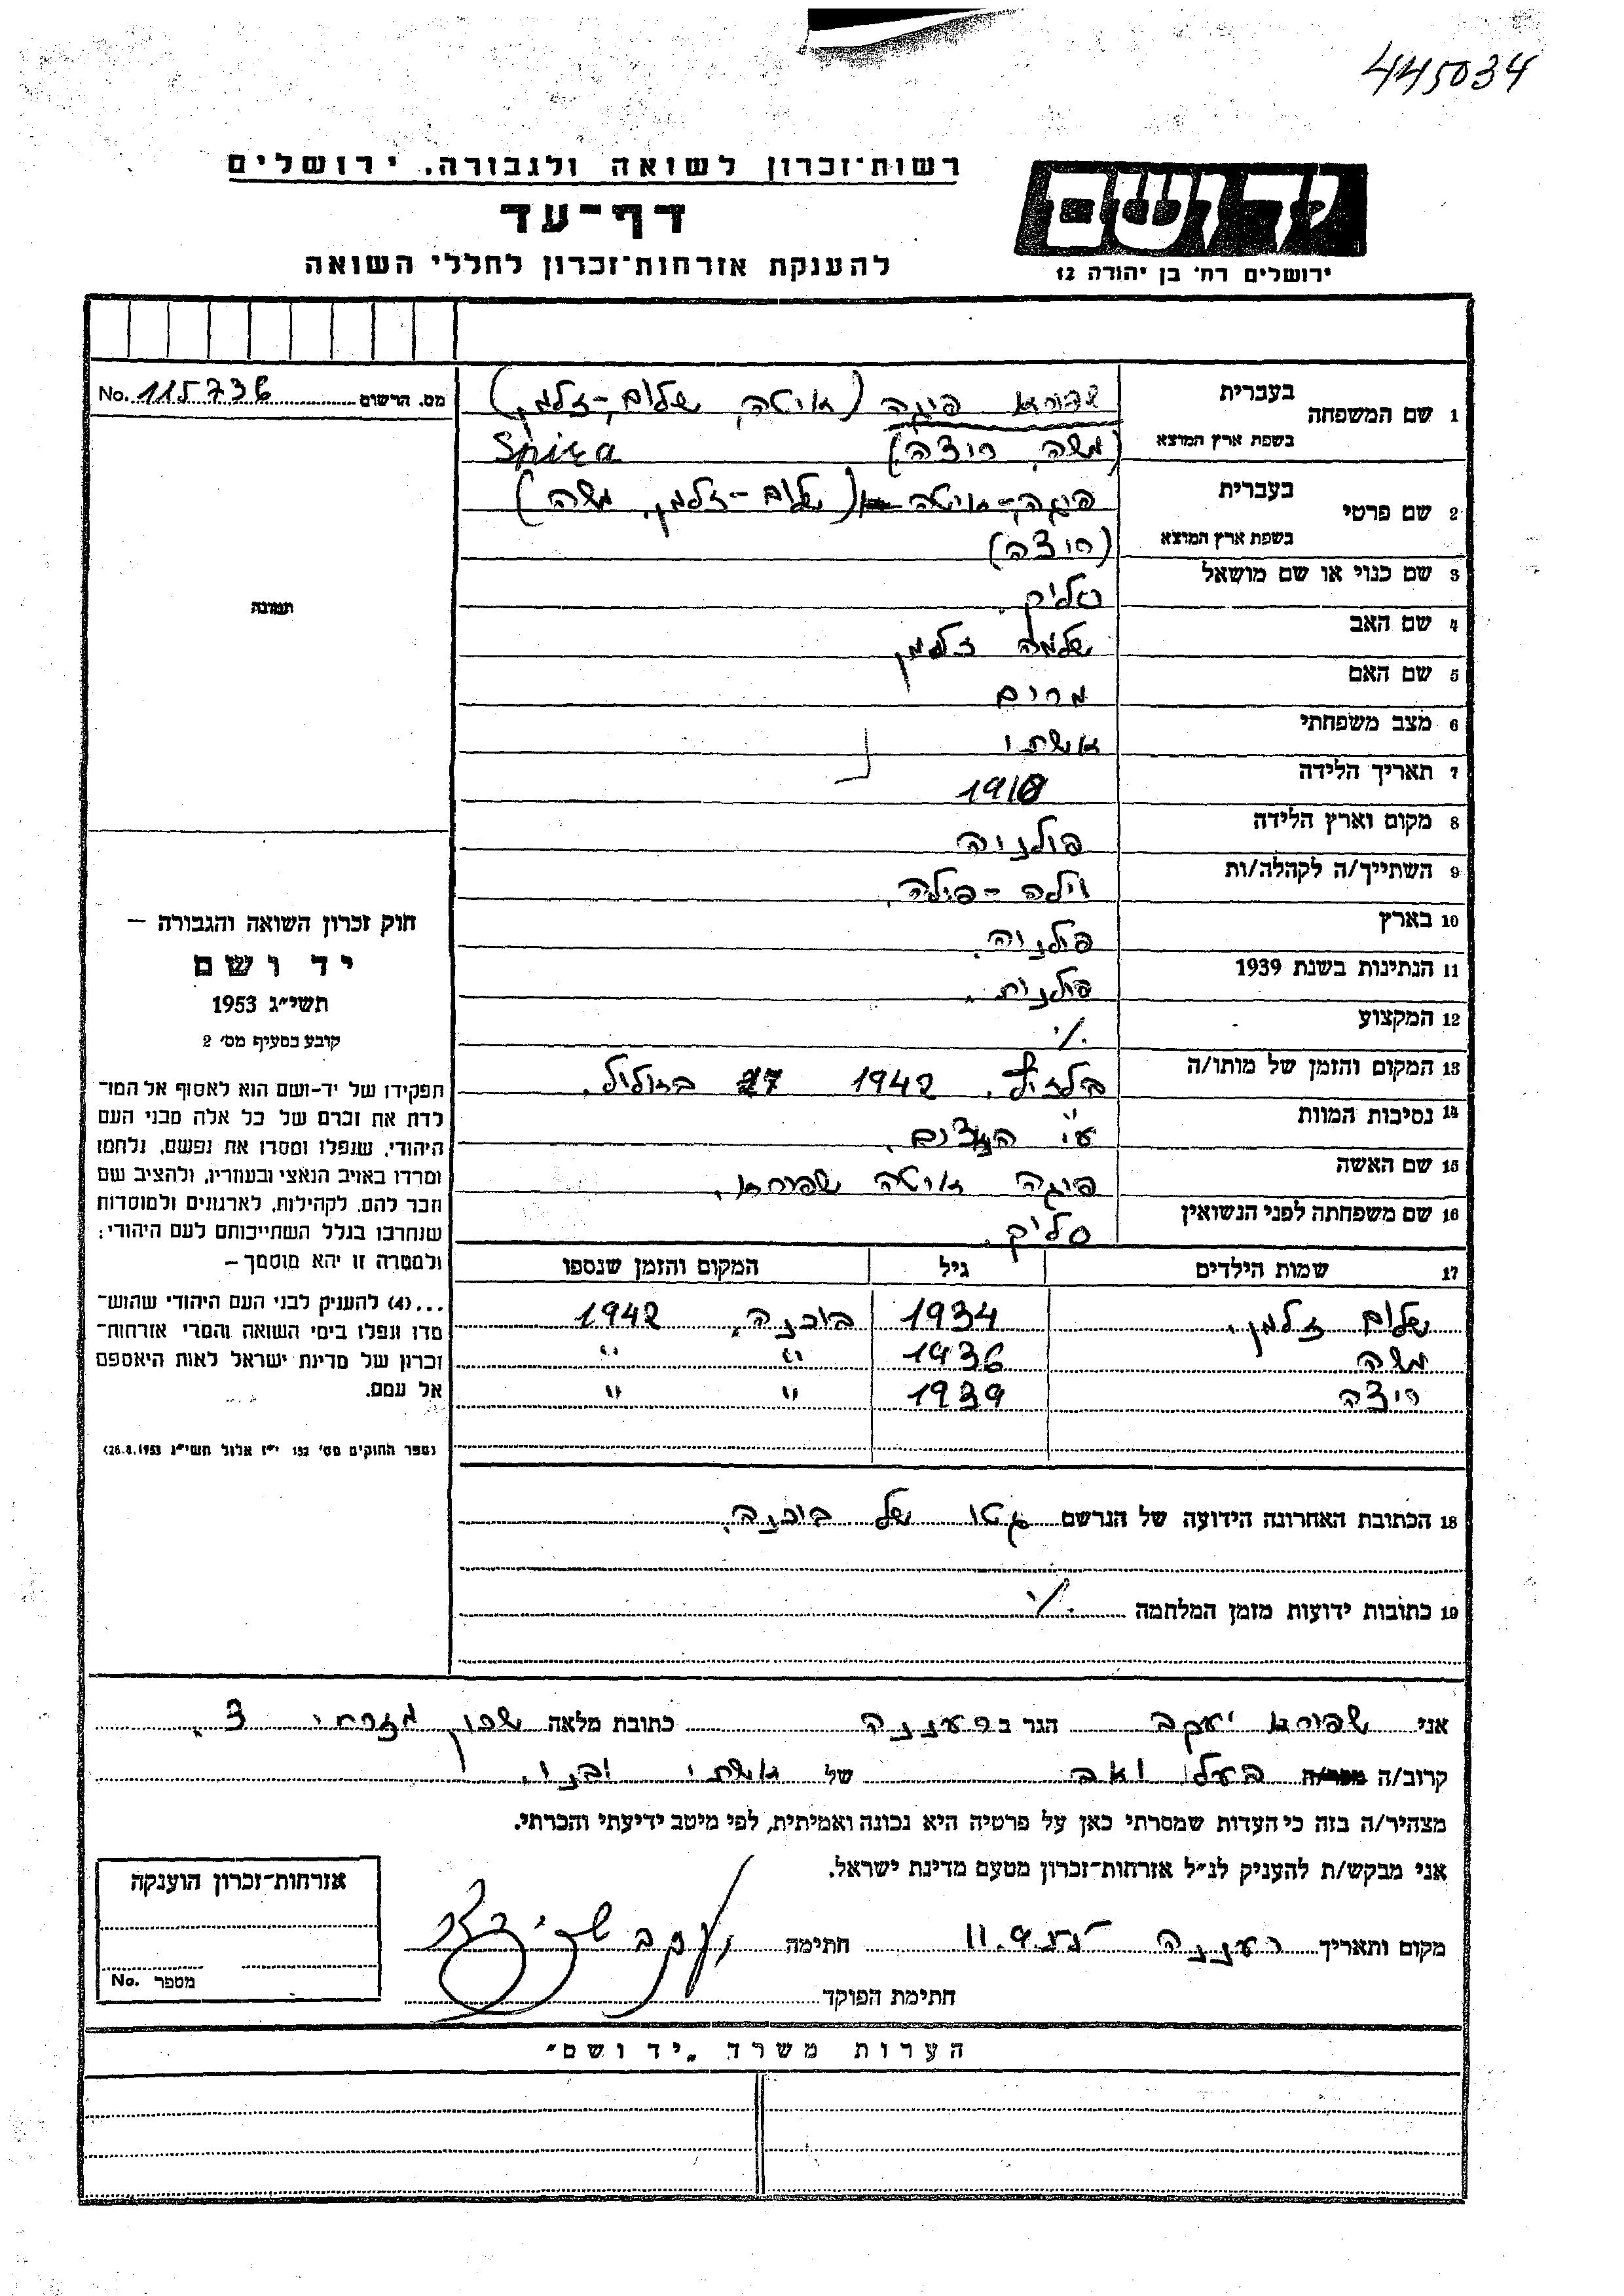 445034
רשות־זכרון לשואה ולגבורה. ירושלים
יד ושם
דף־עד
להענקת אזרחות־זכרון לחללי השואה
ירושלים רח' בן יהודה 12
מס. הרשום 115736 No.
1 שם המשפחה בעברית שפירא פיגה (איטה, שלום,-זלמן)
בשפת ארץ המוצא (משה, ריצה) Spira
2 שם פרטי בעברית פיגה-איטה (שלום-זלמן, משה)
בשפת ארץ המוצא (ריצה)
3 שם כנוי או שם מושאל סליק.
4 שם האב שלמה זלמן
5 שם האם מרים
6 מצב משפחתי אשתו
7 תאריך הלידה 1910
8 מקום וארץ הלידה פולניה
9 השתייך/ה לקהלה/ות
10 בארץ פולניה.
11 הנתינות בשנת 1939 פולנית.
12 המקצוע ./.
13 המקום והזמן של מותו/ה 1942 27
14 נסיבות המוות ע"י
15 שם האשה פיגה איטה שפירא.
16 שם משפחתה לפני הנשואין סליק.
17 שמות הילדים גיל המקום והזמן שנספו
שלום זלמן. 1934 בוכנה. 1942
משה 1936 " "
ריצה 1939 " "
18 הכתובת האחרונה הידועה של הנרשם גטו של בוכנה.
19 כתובות ידועות מזמן המלחמה ./.
תמונה
חוק זכרון השואה והגבורה —
יד ושם
תשי״ג 1953
קובע בסעיף מס' 2
תפקידו של יד-ושם הוא לאסוף אל המו־
לדת את זכרם של כל אלה מבני העם
היהודי, שנפלו ומסרו את נפשם, נלחמו
ומרדו באויב הנאצי ובעוזריו, ולהציב שם
וזכר להם, לקהילות, לארגונים ולמוסדות
שנחרבו בגלל השתייכותם לעם היהודי;
ולמטרה זו יהא מוסמך —
...(4) להעניק לבני העם היהודי שהוש־
מדו ונפלו בימי השואה והמרי אזרחות־
זכרון של מדינת ישראל לאות היאספם
אל עמם.
(ספר החוקים מס' 132 י״ז אלול תשי״ג 28.8.1953)
אני שפירא יעקב הגר ב רעננה כתובת מלאה שכון מזרחי 3.
קרוב/ה מכר/ה בעלו ואב של אשתי ובני.
מצהיר/ה בזה כי העדות שמסרתי כאן על פרטיה היא נכונה ואמיתית, לפי מיטב ידיעתי והכרתי.
אני מבקש/ת להעניק לנ״ל אזרחות־זכרון מטעם מדינת ישראל.
מקום ותאריך רעננה 11.9.55 חתימה יעקב שפירא
חתימת הפוקד
אזרחות־זכרון הוענקה
מספר No.
הערות משרד „יד ושם״